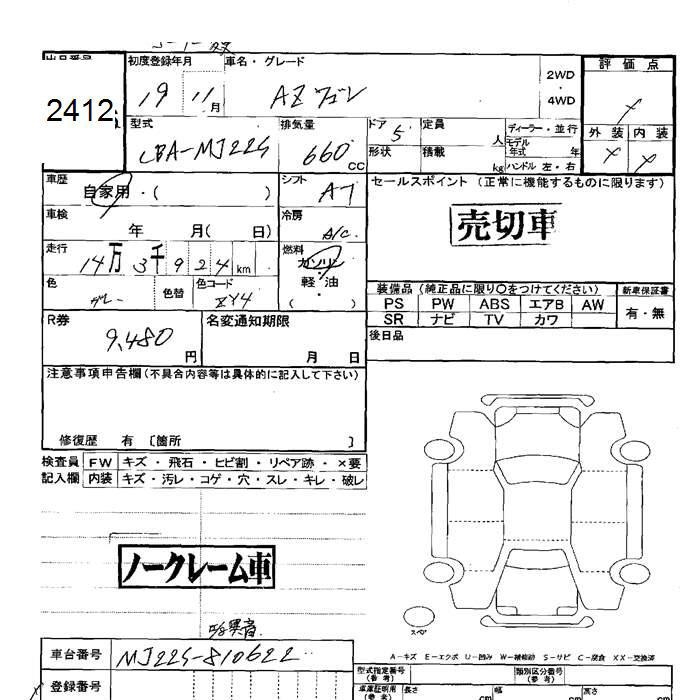 初度登録年月 車名・グレード 2WD・4WD 評価点
2412
19 11月 AZワゴン
型式 排気量 ドア 5 定員 人 ディーラー・並行 外装 内装
CBA-MJ22S 660cc 形状 積載 kg モデル年式 年 ハンドル 左・右
車歴 自家用・( ) シフト AT セールスポイント (正常に機能するものに限ります)
車検 年 月( 日) 冷房 A/C 売切車
走行 14万3千924km 燃料 ガソリン・軽・油・( )
色 グレー 色替 色コード ZY4
装備品 (純正品に限り○をつけてください) 新車保証書
PS PW ABS エアB AW 有・無
SR ナビ TV カワ
R券 9,480円 名変通知期限 月 日 後日品
注意事項申告欄(不具合内容等は具体的に記入して下さい)
修復歴 有 〔箇所 〕
検査員 FW キズ・飛石・ヒビ割・リペア跡・×要
記入欄 内装 キズ・汚レ・コゲ・穴・スレ・キレ・破レ
ノークレーム車
スペア
異音
A-キズ E-エクボ U-凹み W-補修跡 S-サビ C-腐食 XX-交換済
車台番号 MJ22S-810622
型式指定番号(参考) 類別区分番号(参考)
登録番号 車庫証明用(参考) 長さ cm 幅 cm 高さ cm